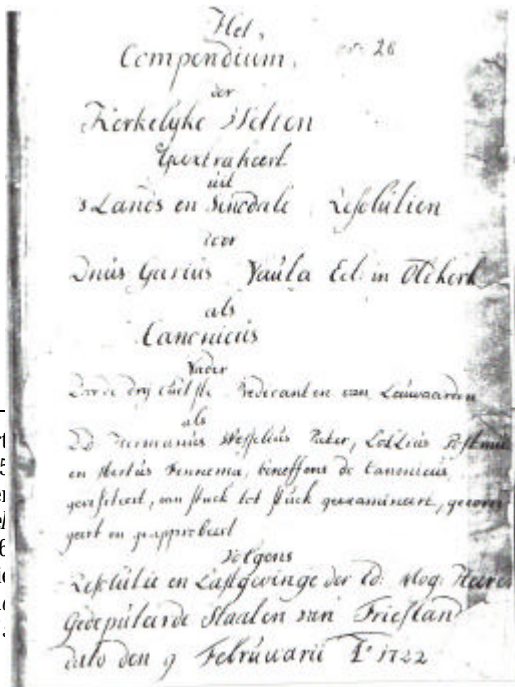 Het,
Compendium, no: 26
der
Kerkelyke Wetten
Geextraheert
uit
s Lands en Sinodale Resolutien
door
Dnus Gerius Vaula Ecl: in Otekerk
als
Canonicus
Nader
Door de dry Predicanten van Leuwaarden
als
Dd Hermanus Wesselius Pater, Lollius Postma
en Sertus Vennema, beneffens de Canonicus,
gevisiteert, van stuck tot stuck geexamineert, gecorri
geert en geapprobeert
Volgens
Resolutie en Lastgevinge der Ed: Mog: Heeren
Gedeputeerde Staaten van Friesland
dato den 9 Februwarii 1722